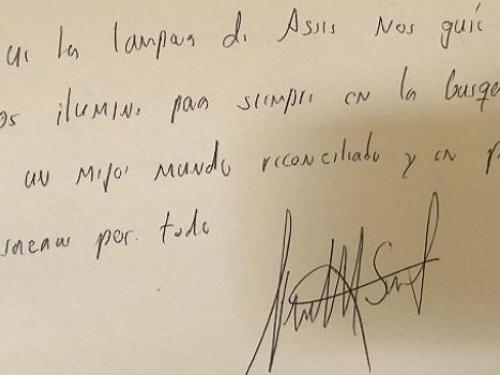 la lampara de Assis Nos guíe
os ilumine para siempre en la busque
un mejor mundo reconciliado y en p
por todo